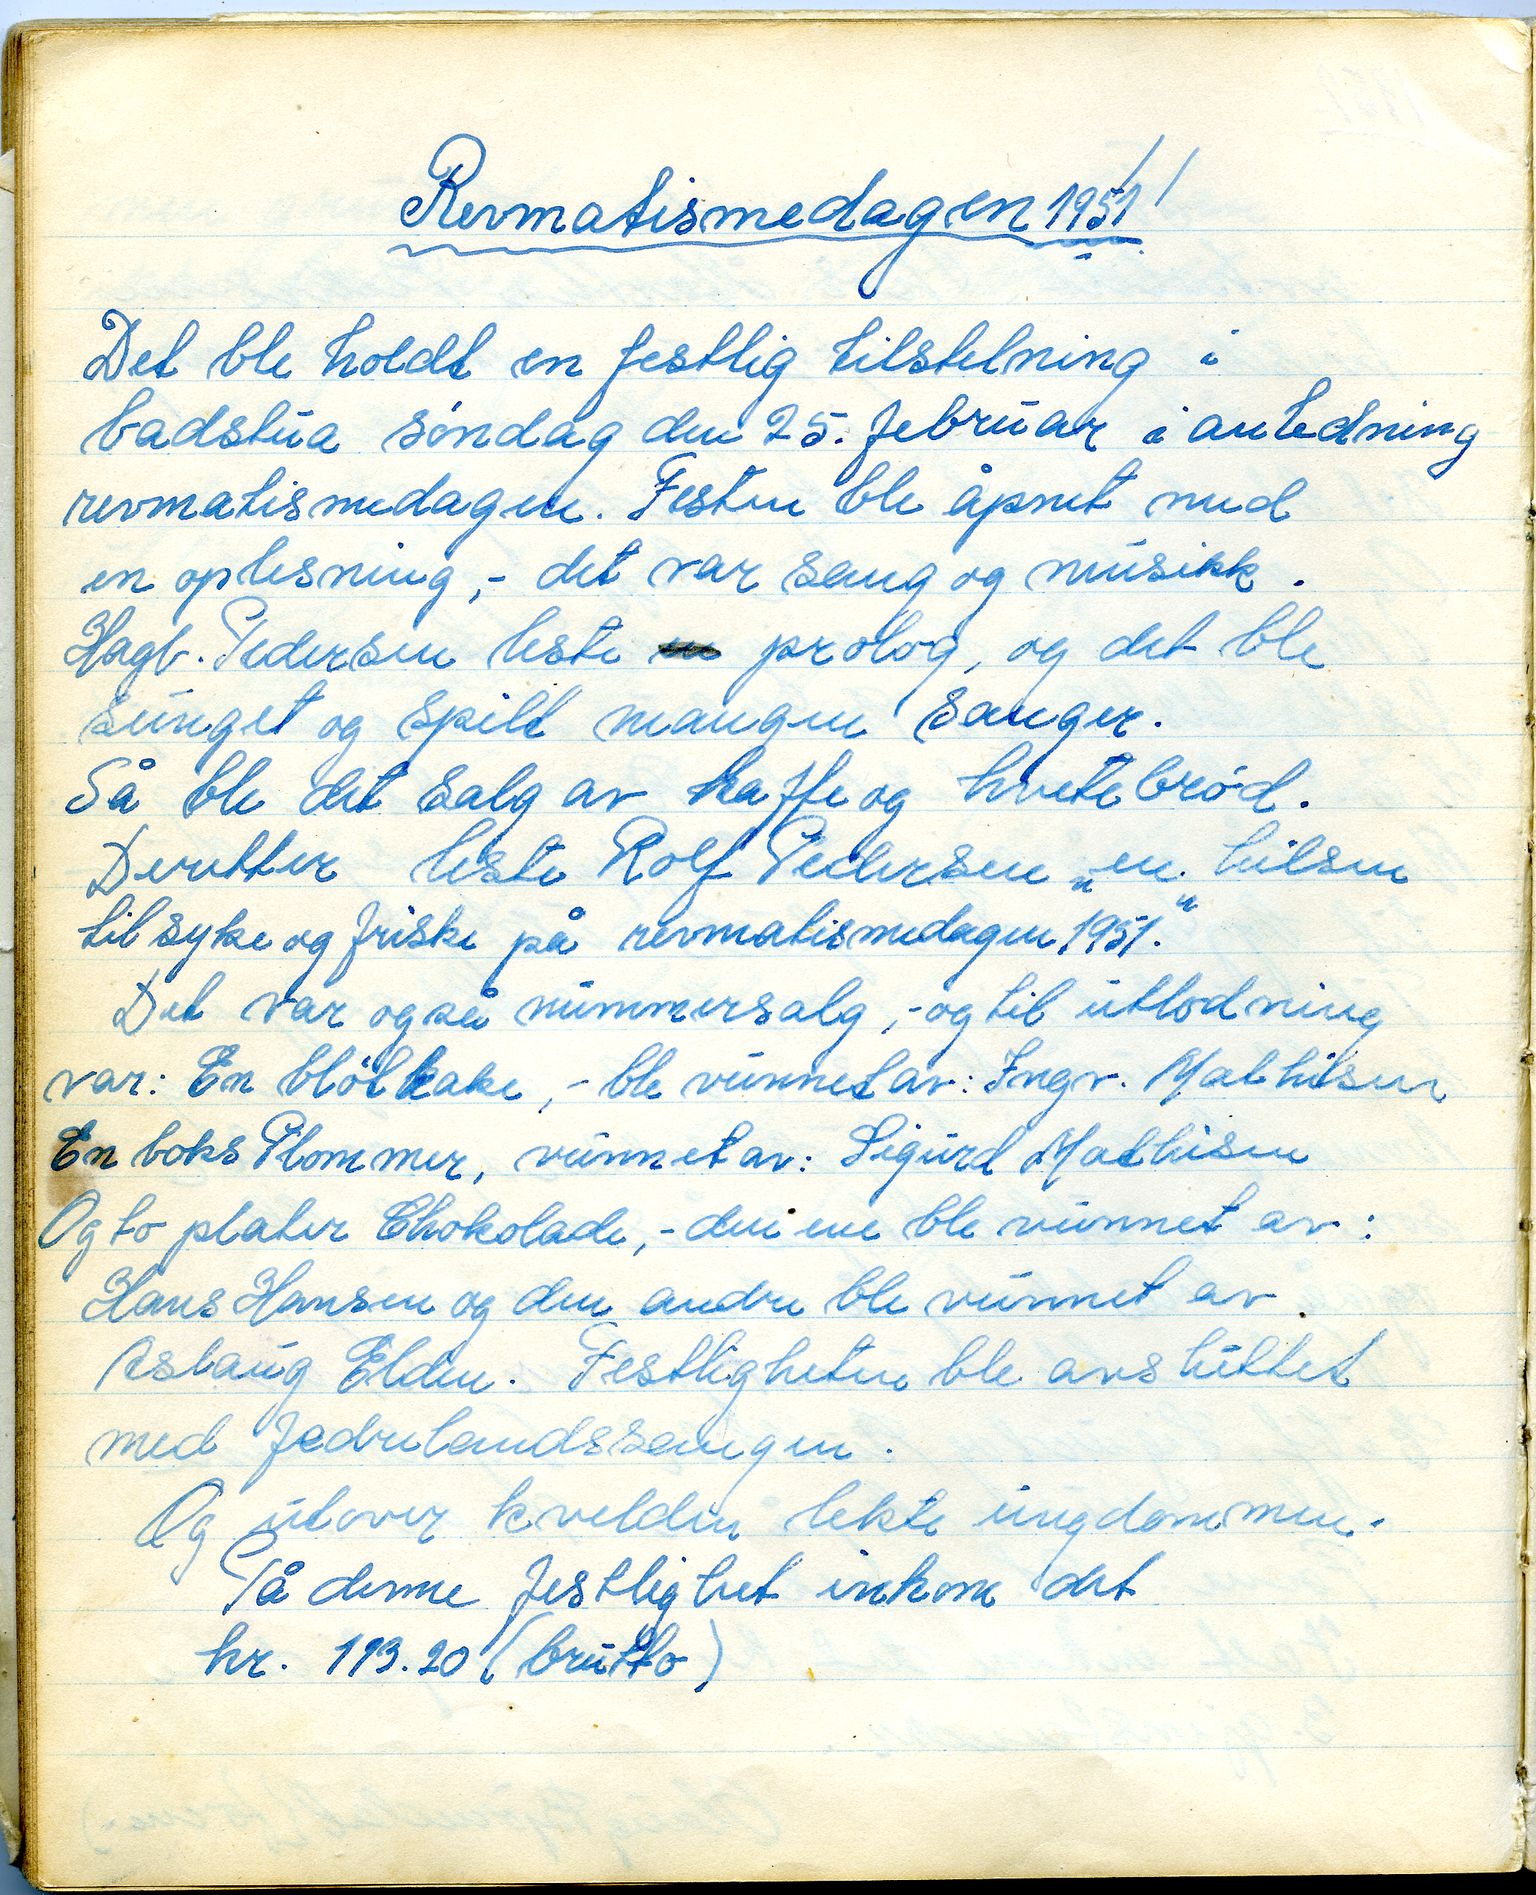 Revmatismedagen 1951!
Det ble holdt en festlig tilstelning i
badstua søndag den 25. februar i anledning
revmatismedagen. Festen ble åpnet med
en oplesning, - det var sang og musikk.
Hagb. Pedersen leste prolog, og det ble
sunget og spilt mangen sanger.
Så ble det salg av kaffe og hvetebrød.
Deretter leste Rolf Pedersen „en hilsen
til syke og friske på revmatismedagen 1951."
Det var også nummersalg, - og til utlodning
var: En bløtkake, - ble vunnet av: Ingv. Mathisen
En boks Plommer, vunnet av: Sigurd Mathisen
Og to plater Chokolade, - den ene ble vunnet av:
Hans Hansen og den andre ble vunnet av
Aslaug Elden. Festligheten ble avsluttet
med fedrelandssangen.
Og utover kvelden lekte ungdommen.
På denne festlighet innkom det
kr. 113.20 (brutto)